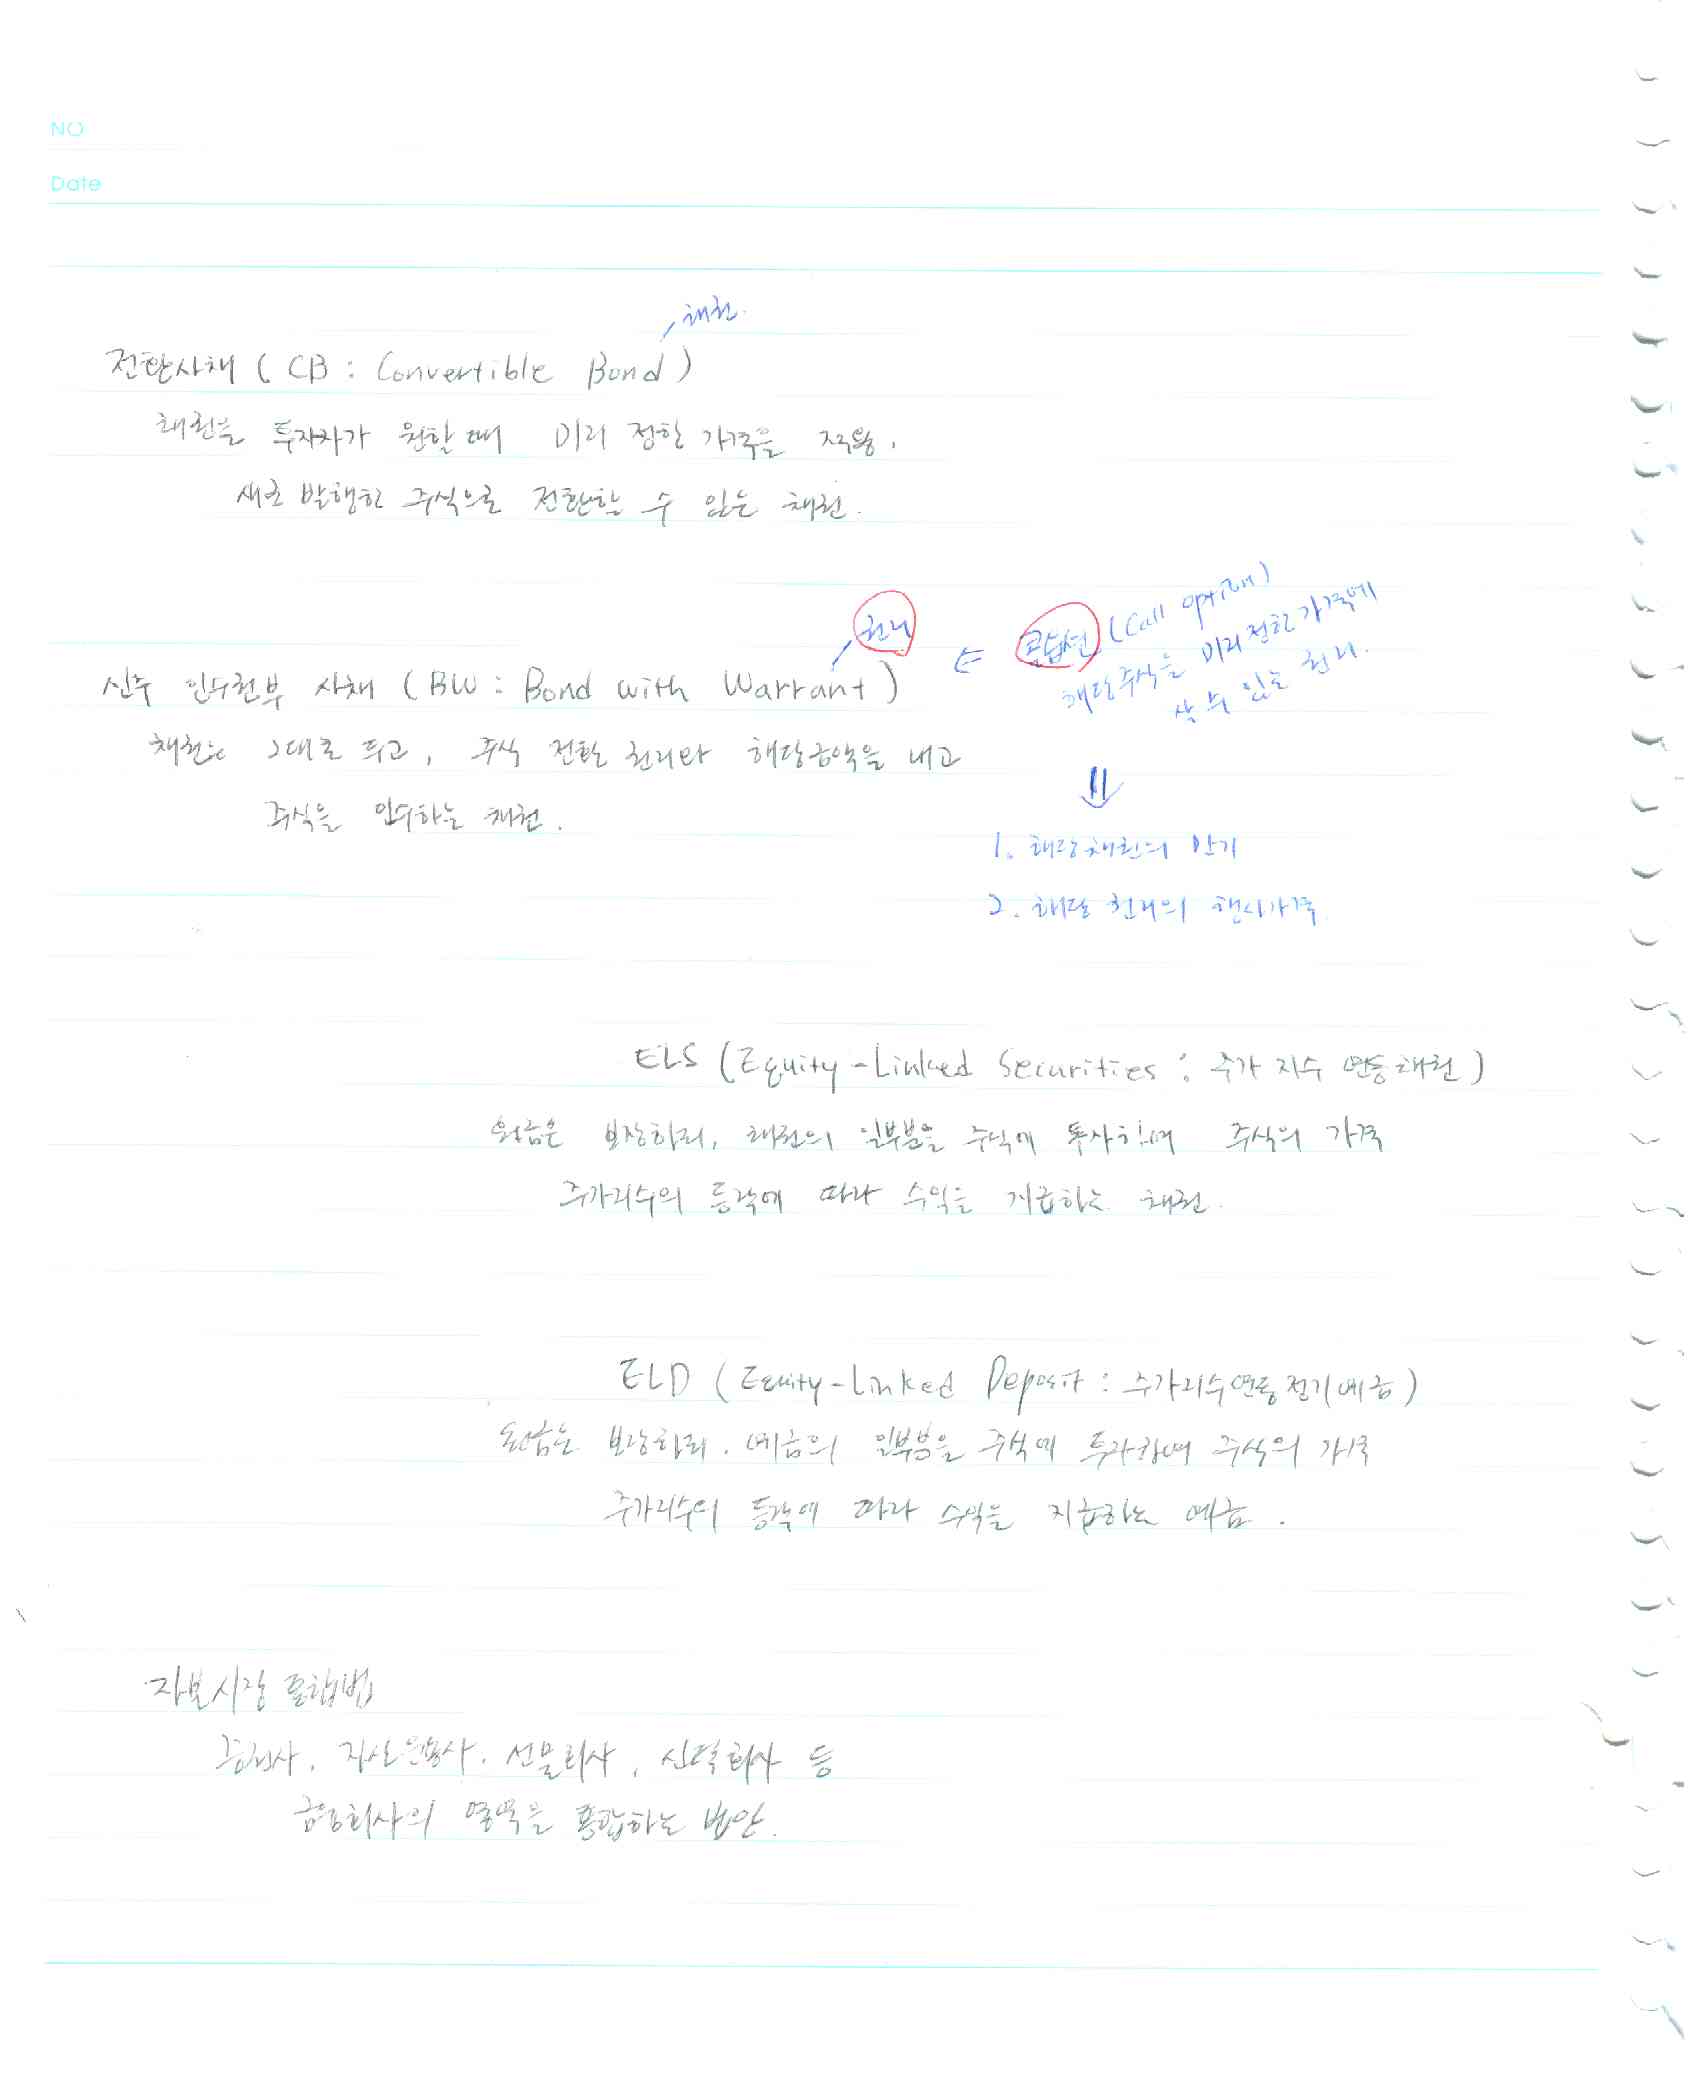 NO
Date
채권.
전환사채 (CB : Convertible Bond)
채권을 투자자가 원할 때 미리 정한 가격을 적용,
새로 발행한 주식으로 전환할 수 있는 채권.
권리
⇐ 콜옵션 (Call option)
해당주식을 미리 정한 가격에
살 수 있는 권리.
신주 인수권부 사채 (BW : Bond with Warrant)
채권은 그대로 두고, 주식 전환 권리와 해당금액을 내고
주식을 인수하는 채권.
⇓
1. 해당채권의 만기
2. 해당 권리의 행사가격
ELS (Equity-Linked Securities : 주가 지수 연동채권)
원금은 보장하되, 채권의 일부분을 주식에 투자하며 주식의 가격
주가지수의 등락에 따라 수익을 지급하는 채권.
ELD (Equity-Linked Deposit : 주가지수연동정기예금)
원금은 보장하되. 예금의 일부분을 주식에 투자하며 주식의 가격
주가지수의 등락에 따라 수익을 지급하는 예금.
자본시장 통합법
증권사, 자산운용사, 선물회사, 신탁회사 등
금융회사의 영역을 통합하는 법안.